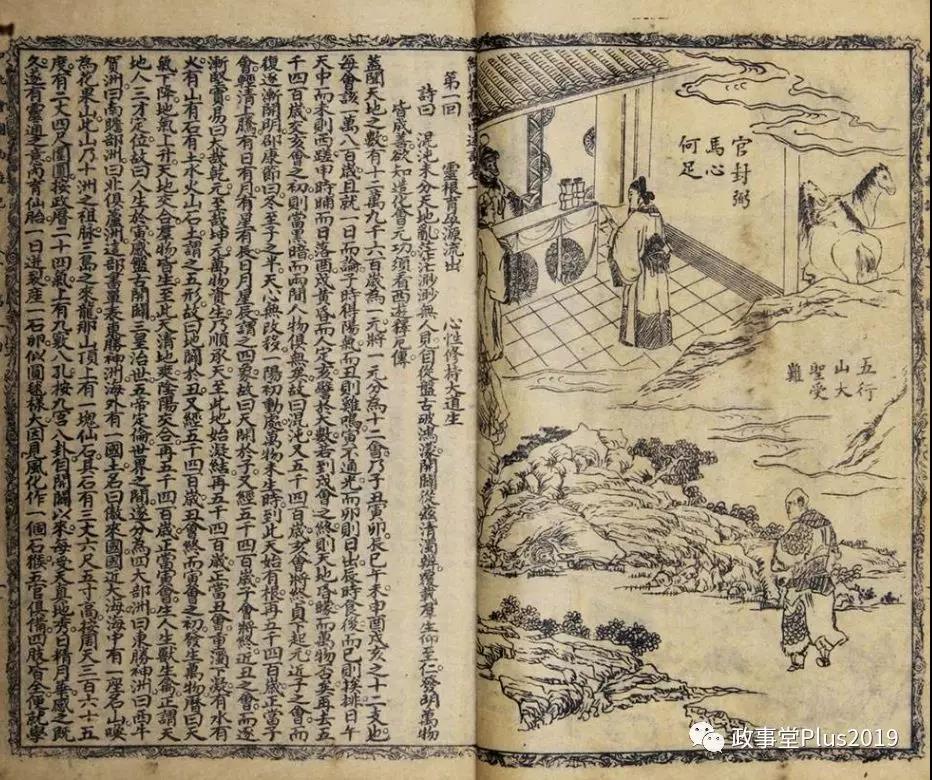 官封弼
馬心
何足
五行
山大
聖受
難
第一回　靈根育孕源流出　心性修持大道生
詩曰　混沌未分天地亂茫茫渺渺無人見自從盤古破鴻濛開闢從茲清濁辨覆載群生仰至仁發明萬物
皆成善欲知造化會元功須看西遊釋厄傳
蓋聞天地之數有十二萬九千六百歲為一元將一元分為十二會乃子丑寅卯辰巳午未申酉戌亥之十二支也
每會該一萬八百歲且就一日而論子時得陽氣而丑則雞鳴寅不通光而卯則日出辰時食後而巳則挨排日午
天中而未則西蹉申時晡而日落酉戌黃昏而人定亥譬於大數若到戌會之終則天地昏曚而萬物否矣再去五
千四百歲交亥會之初則當黑暗而兩間人物俱無矣故曰混沌又五千四百歲亥會將終貞下起元近子之會而
復逐漸開明邵康節曰冬至子之半天心無改移一陽初動處萬物未生時到此天始有根再五千四百歲正當子
會輕清上騰有日有月有星有辰日月星辰謂之四象故曰天開於子又經五千四百歲子會將終近丑之會而逐
漸堅實易曰大哉乾元至哉坤元萬物資生乃順承天至此地始凝結再五千四百歲正當丑會重濁下凝有水有
火有山有石有土水火山石土謂之五形故曰地闢於丑又經五千四百歲丑會終而寅會之初發生萬物曆曰天
氣下降地氣上升天地交合群物皆生至此天清地爽陰陽交合再五千四百歲正當寅會生人生獸生禽正謂天
地人三才定位故曰人生於寅感盤古開闢三皇治世五帝定倫世界之間遂分為四大部洲曰東勝神洲曰西牛
賀洲曰南贍部洲曰北俱蘆洲這部書單表東勝神洲海外有一國土名曰傲來國國近大海海中有一座名山喚
為花果山此山乃十洲之祖脉三島之來龍那山頂上有一塊仙石其石有三丈六尺五寸高按周天三百六十五
度有二丈四尺圍圓按政曆二十四氣上有九竅八孔按九宮八卦自開闢以來每受天真地秀日精月華感之既
久遂有靈通之意內育仙胎一日迸裂產一石卵似圓毬樣大因見風化作一個石猴五官俱備四肢皆全便就學
政事堂Plus2019